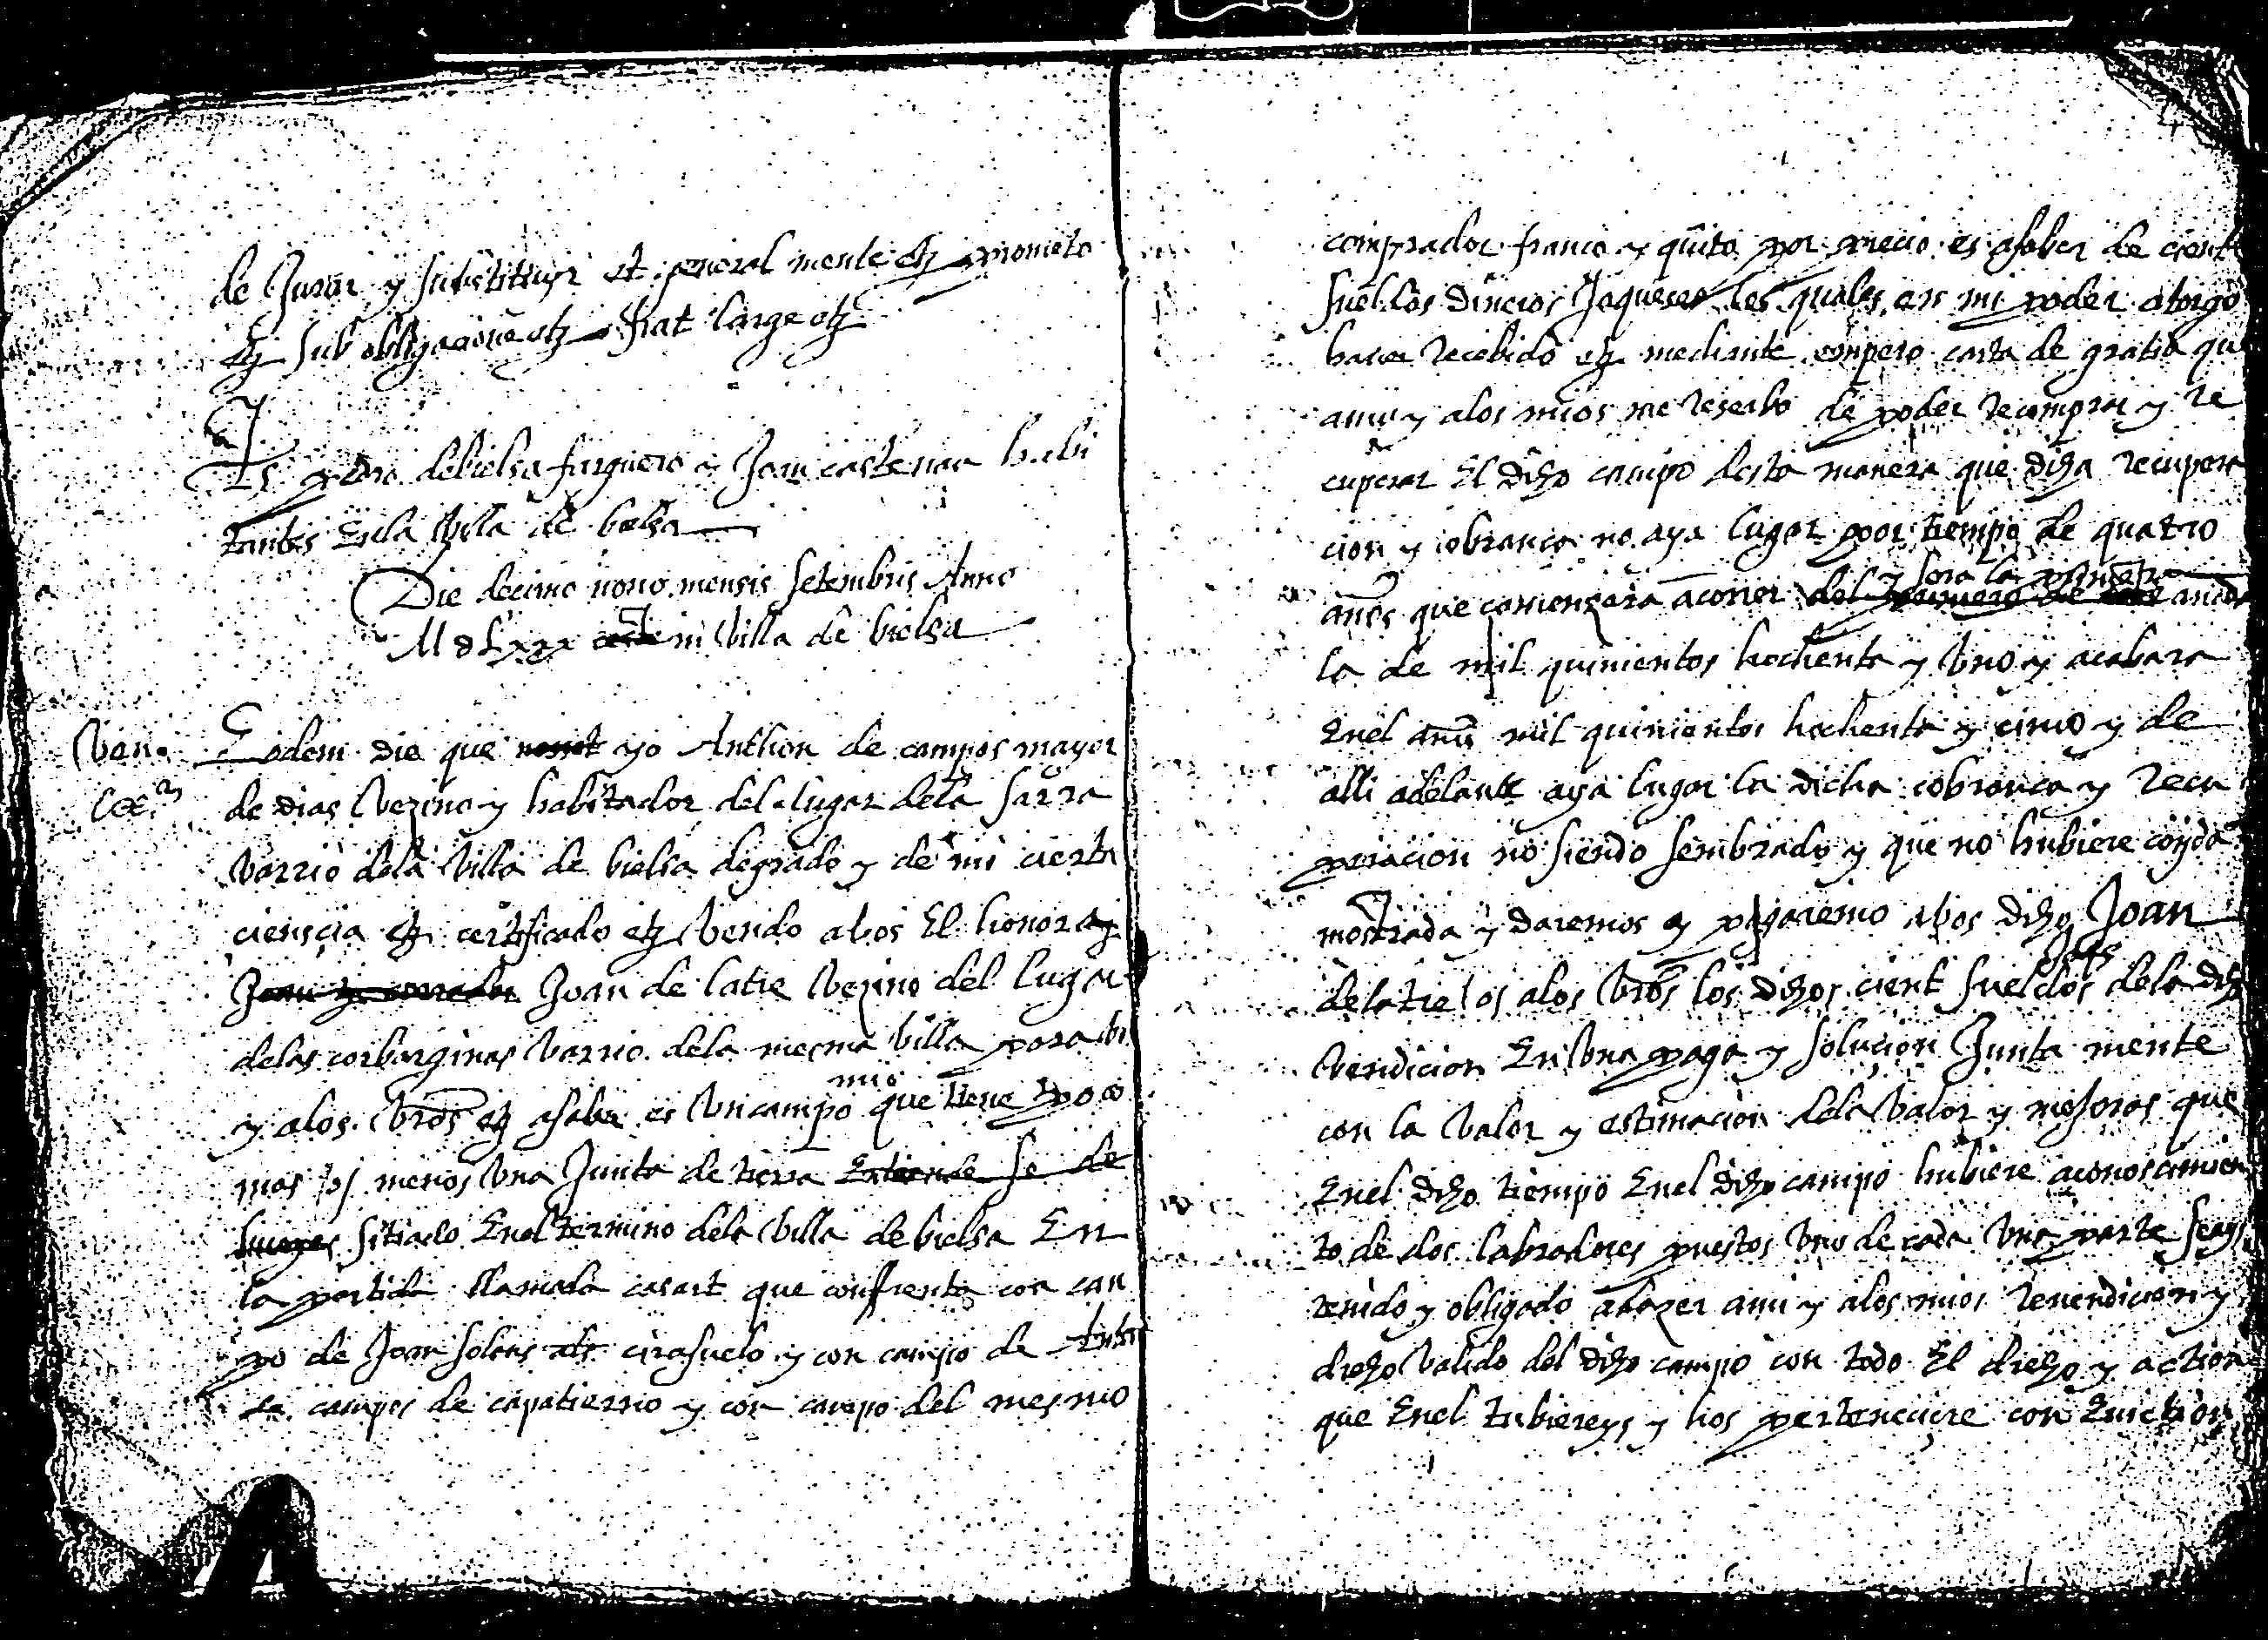 de Jurar y substituyr et general mente etz prometo
etz sub obligacione etz fiat large etz
Ts pedro debielsa farguero y Joan castenau habi
tantes Enla Villa de bielsa
Die decimo nono mensis setembris Anno
M d Lxxx in Villa de bielsa
Ven.
Eodem die que yo Anthon de campos mayor
de dias Vezino y habitador del lugar dela sarra
Varrio dela Villa de bielsa degrado y de mi cierta
ciencia etz certificado etz Vendo a vos El honor etz
Joan de latre Vezino del lugar
delas corbarginas Varrio dela mesma Villa pora Vos
y alos Vros etz asaber es Vn campo mio que tiene poco
mas o menos Vna Junta de tierra Extiende se de
sitiado Enel termino dela Villa de bielsa En
la partida llamada casart que confrenta con cam
po de Joan solans als cirasuelo y con campo de Anton
de campos de capatierno y con campo del mesmo
comprador franco y quito por precio es asaber de cient
suelldos dineros Jaqueses los quales en mi poder atorgo
haver recebido etz mediante empero carta de gratia que
ami y alos mios me reserbo de poder recomprar y re
cuperar El dicho campo desta manera que dicha recupera
cion y cobranca no aya lugar por tiempo de quatro
anos que comencara acorrer del sera la primera anada
la de mil quinientos hochenta y Vno y acabara
Enel anno mil quinientos hochenta y cinco y de
alli adelante aya lugar la dicha cobranca y recu
peracion no siendo sembrado y que no hubiere coyda
mostrada y daremos y pagaremo a vos dicho Joan
delatre o alos Vros los dichos cient sueldos Jaqs dela dicha
Vendicion En Vna paga y solucion Junta mente
con la Valor y estimacion dela Valor y mejoras que
Enel dicho tiempo Enel dicho campo hubiere aconoscimien
to de dos labradores puestos Vno de cada Vna parte seays
tenido y obligado a hazer ami y alos mios revendicion y
drecho Valido del dicho campo con todo El drecho y action
que Enel tubiereys y bos pertenecire con Euiction